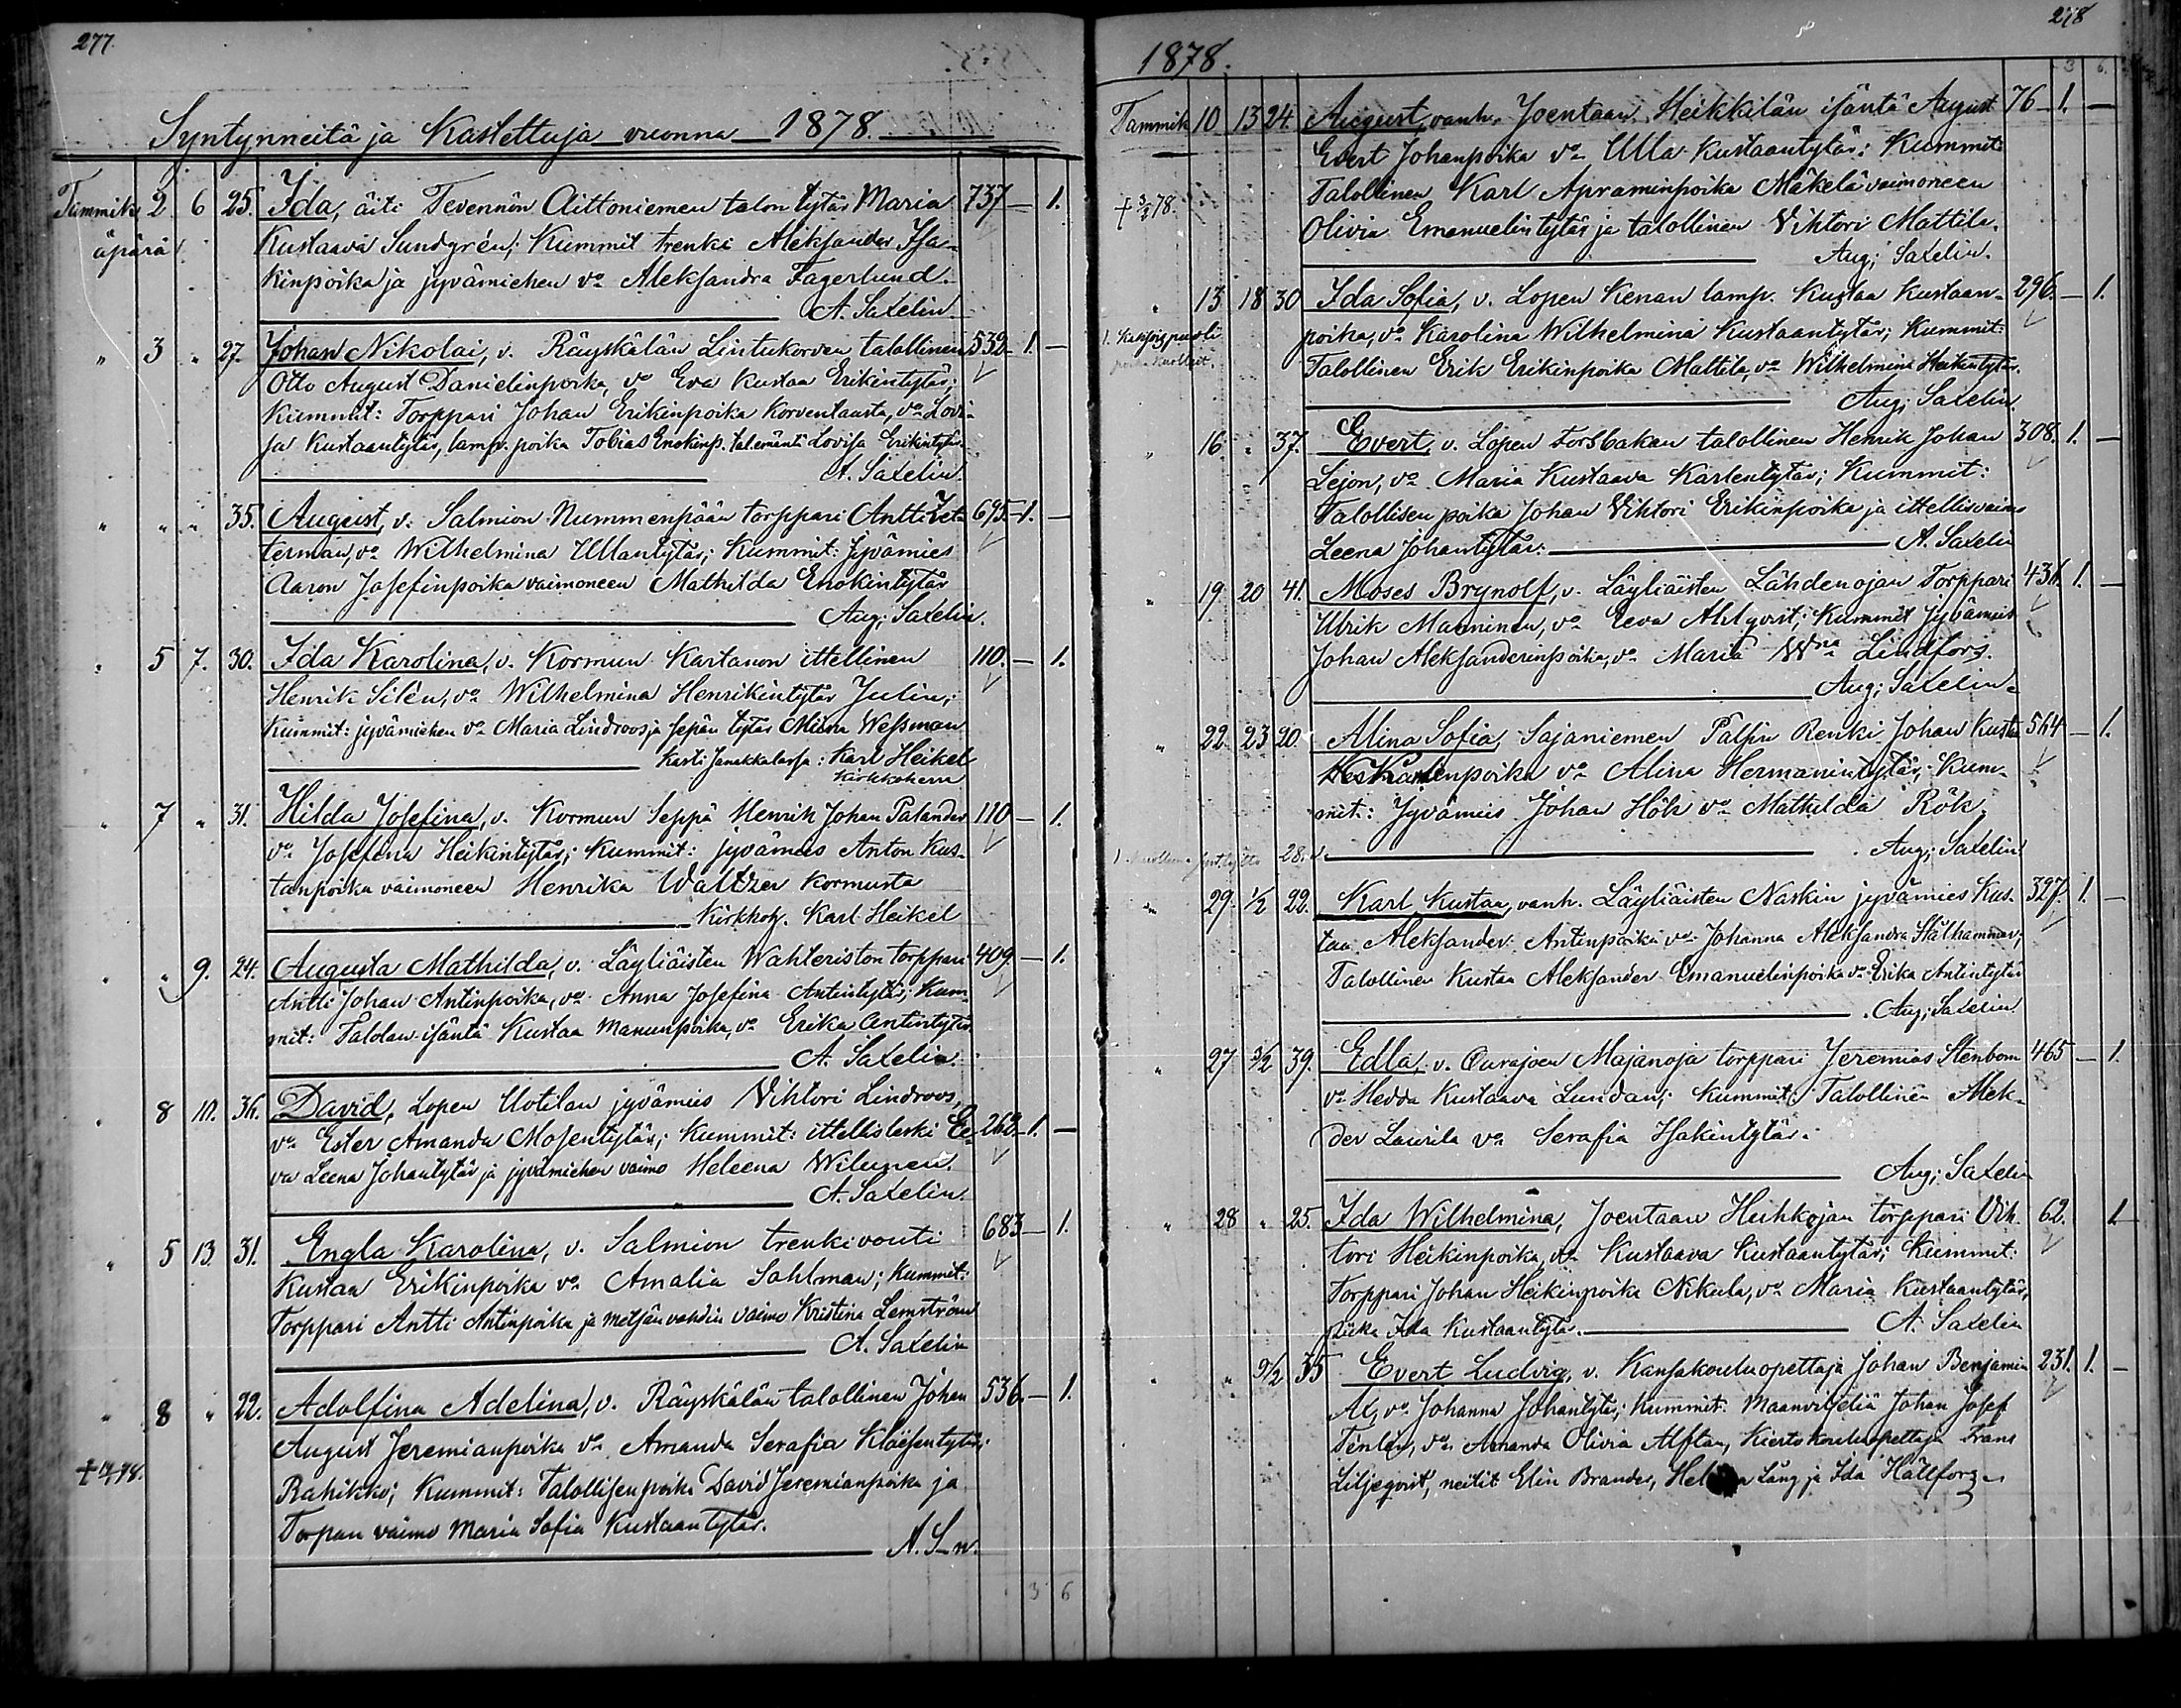 277.
Syntyneitä ja Kastettuja vuonna 1878.
Tammik. 2 6 25. Ida, äiti Tevennön Aittoniemen talon tytär Maria 737 — 1.
äpärä Kustaava Sundgrén; Kummit trenki Aleksander Isa-
kinpoika ja jyvämiehen vo Aleksandra Fagerlund.
A. Saxelin.
" 3 " 27. Johan Nikolai, v. Räyskälän Lintukorven talollinen 532 1. —
Otto August Danielinpoika, vo Eva Kustaa Erikintytär;
Kummit: Torppari Johan Erikinpoika Korventausta, vo Lovi-
sa Kustaantytär, lamp. poika Tobias Enokinp. tal.emäntä Lovisa Erikintytär
A. Saxelin.
" " " 35. August, v. Salmion Nummenpään torppari Antti Zet- 695 1. —
terman, vo Wilhelmina Ullantytär; Kummit: Jyvämies
Aaron Josefinpoika vaimoneen Mathilda Enokintytär
Aug; Saxelin.
" 5 7. 30. Ida Karolina, v. Kormun Kartanon ittellinen 110. — 1.
Henrik Silén, vo Wilhelmina Henrikintytär Julin;
Kummit: jyvämiehen vo Maria Lindroos ja sepän tytär Miina Wessman
Kasti Janakkalassa: Karl Heikel
Kirkkoherra
" 7 " 31. Hilda Josefina, v. Kormun Seppä Henrik Johan Palander 110 — 1.
vo Josefina Heikintytär; Kummit: jyvämies Anton Kus-
tanpoika vaimoneen Henrika Waltzer Kormusta
Kirkkoh. Karl Heikel
" " 9. 24. Augusta Mathilda, v. Läyliäisten Wahteriston torppari 409 — 1.
Antti Johan Antinpoika, vo Anna Josefina Antintytär; Kum-
mit: Talolan isäntä Kustaa Manunpoika, vo Erika Antintytär
A. Saxelin.
" 8 10. 36. David, Lopen Uotilan jyvämies Vihtori Lindroos,
vo Ester Amanda Mosentytär; Kummit: ittellisleski Ee- 262 1. —
va Leena Johantytär ja jyvämiehen vaimo Heleena Wilenen.
A. Saxelin.
" 5 13. 31. Engla Karolina, v. Salmion trenkivouti 683 — 1.
Kustaa Erikinpoika vo Amalia Sahlman; Kummit:
Torppari Antti Antinpoika ja metsänvahdin vaimo Kristina Lemström
A. Saxelin
" 8 " 22. Adolfina Adelina, v. Räyskälän talollinen Johan 536 — 1.
August Jeremianpoika vo Amanda Serafia Kläesentytär
Rahikko; Kummit: Talollisenpoika David Jeremianpoika ja
Torpan vaimo Maria Sofia Kustaantytär.
A. S-n.
3 6
278
1878.
3 6.
Tammik 10 13 24. August, vanh. Joentaan Heikkilän isäntä August 76 1. —
Evert Johanpoika vo Ulla Kustaantytär; Kummit:
Talollinen Karl Apraminpoika Mäkelä vaimoneen
+ 3/3 78. Olivia Emanuelintytär ja talollinen Vihtori Mattila.
Aug; Saxelin.
" 13 18 30 Ida Sofia, v. Lopen Kenan lamp. Kustaa Kustaan- 296. — 1.
poika, vo Karolina Wilhelmina Kustaantytär; Kummit:
Talollinen Erik Erikinpoika Mattila, vo Wilhelmina Heikintytär.
Aug; Saxelin.
" 16 " 37. Evert, v. Lopen Forsbakan talollinen Henrik Johan 308. 1. —
Lejon, vo Maria Kustaava Karlentytär; Kummit:
Talollisen poika Johan Vihtori Erikinpoika ja ittellisvaimo
Leena Johantytär. A. Saxelin
" 19 20 41. Moses Brynolf, v. Läyliäisten Lähdenojan Torppari 431. 1. —
Ulrik Manninen, vo Eeva Ahlqvist; Kummit Jyvämies
Johan Aleksanderinpoika, vo Maria Wna Lindfors.
Aug; Saxelin.
" 22 23 20. Alina Sofia, Sajaniemen Palsin Renki Johan Kustaa 564 — 1.
Karlenpoika vo Alina Hermanintytär; Kum-
mit: Jyvämies Johan Hök vo Mathilda Rök.
28. Aug; Saxelin
" 29. 1/2 22. Karl Kustaa, vanh. Läyliäisten Naskin jyvämies Kus- 327. 1. —
taa Aleksander Antinpoika vo Johanna Aleksandra Stålhammar;
Talollinen Kustaa Aleksander Emanuelinpoika vo Erika Antintytär
Aug; Saxelin
" 27 3/2 39. Edla, v. Ourajoen Majanoja torppari Jeremias Stenbom 465 — 1.
vo Hedda Kustaava Lundan; Kummit: Talollinen Alek-
der Laurila vo Serafia Isakintytär.
Aug; Saxelin
" 28 " 25. Ida Wilhelmina, Joentaan Heihkojan torppari Vih- 62. 1
tori Heikinpoika, vo Kustaava Kustaantytär; Kummit:
Torppari Johan Heikinpoika Nikula, vo Maria Kustaantytär,
piika Ida Kustaantytär. A. Saxelin
" " 9/2 35 Evert Ludvig, v. Kansakouluopettaja Johan Benjamin 231. 1. —
Al, vo Johanna Johantytär; Kummit: Maanviljeliä Johan Josef
Tenlén, vo Amanda Olivia Alftan, Kiertokouluopettaja Frans
Liljeqvist, neitit Elin Brander, Lång ja Ida Hällfors